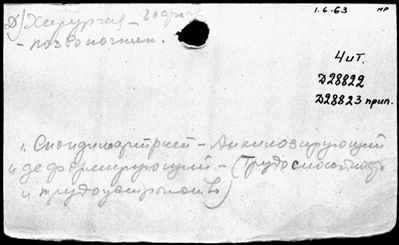 Д) Хирургия –
– позвоночник.
1.6-63
ИР
4 ит.
Д28822
Д28823 прип.
1. Спондилоартрит – Анкилозирующий
и деформирующий – (Трудоспособность
и трудоустройство)